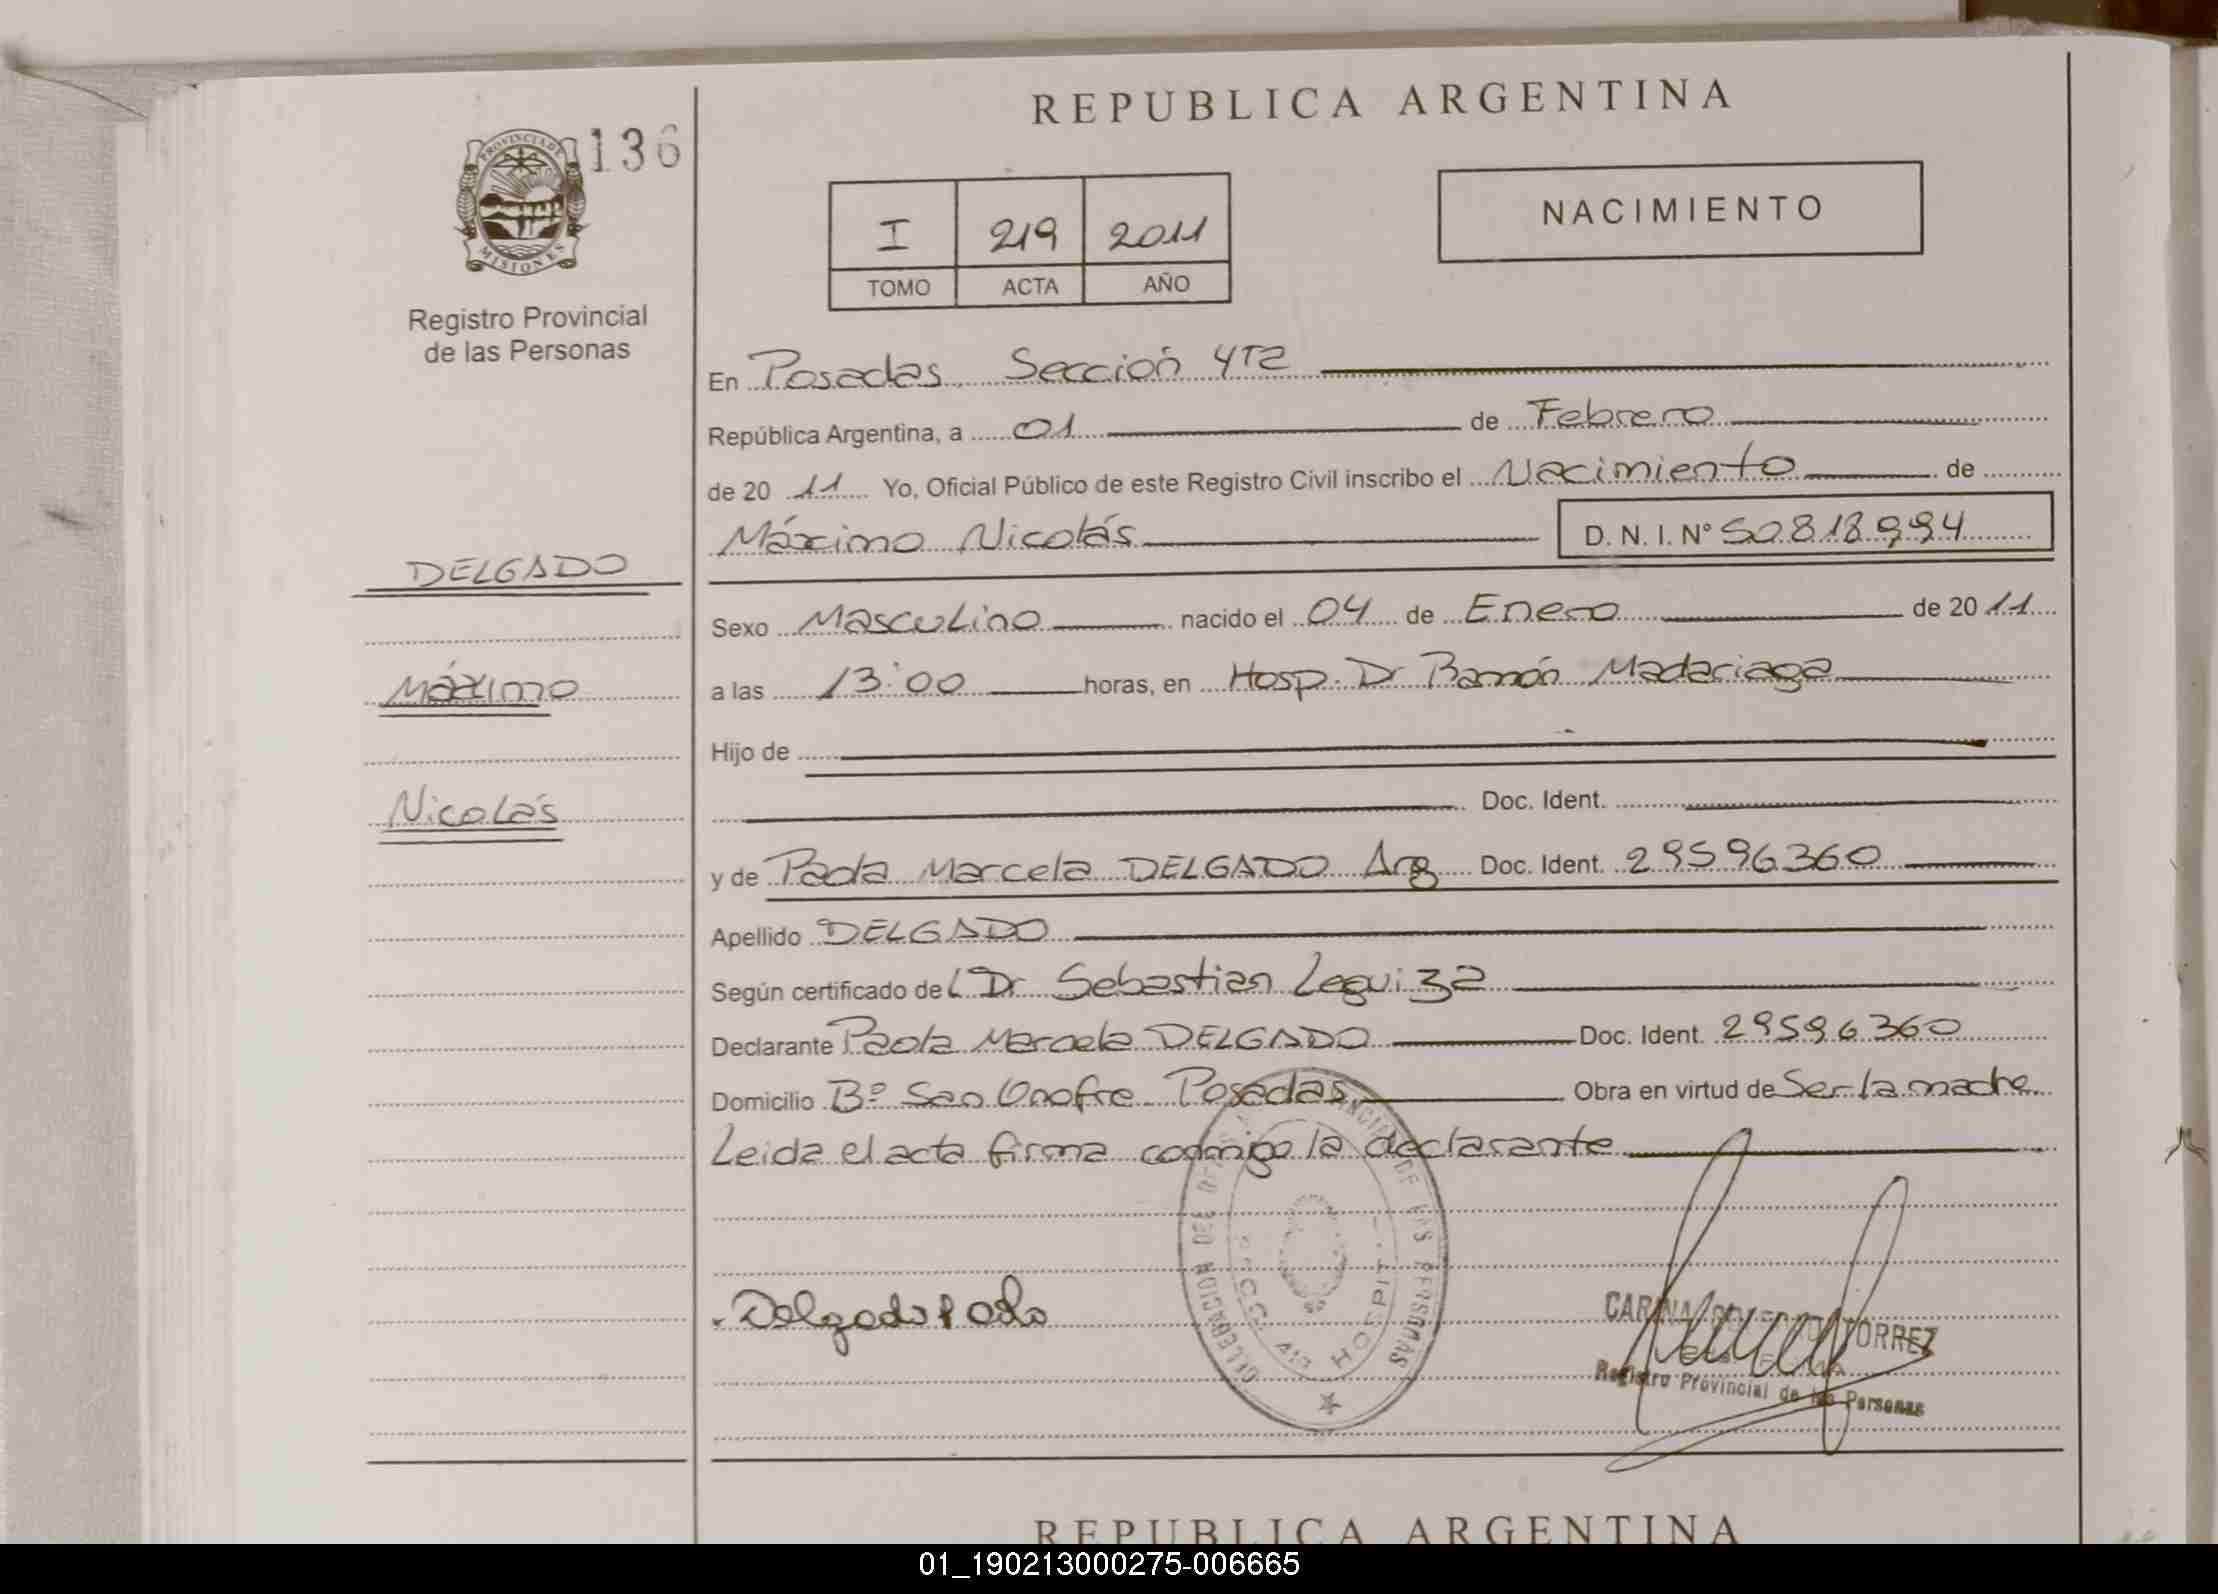 REPUBLICA ARGENTINA
136
PROVINCIA DE
MISIONES
Registro Provincial
de las Personas
I 219 2011
TOMO ACTA AÑO
NACIMIENTO
En Posadas Sección 4ta
República Argentina, a 01 de Febrero
de 20 11 Yo, Oficial Público de este Registro Civil inscribo el Nacimiento de
Máximo Nicolás D. N. I. N° 50.818.994
DELGADO
Máximo
Nicolás
Sexo Masculino nacido el 04 de Enero de 20 11
a las 13:00 horas, en Hosp. Dr Ramón Madariaga
Hijo de
Doc. Ident.
y de Paola Marcela DELGADO Arg Doc. Ident. 29596360
Apellido DELGADO
Según certificado del Dr Sebastian Leguiza
Declarante Paola Marcela DELGADO Doc. Ident. 29596360
Domicilio B° San Onofre Posadas Obra en virtud de Ser la madre
Leida el acta firma conmigo la declarante
Delgado Paola
DELEGACION DE LAS PERSONAS
HOSPIT
TORREZ
Registro Provincial de las Personas
REPUBLICA ARGENTINA
01_190213000275-006665